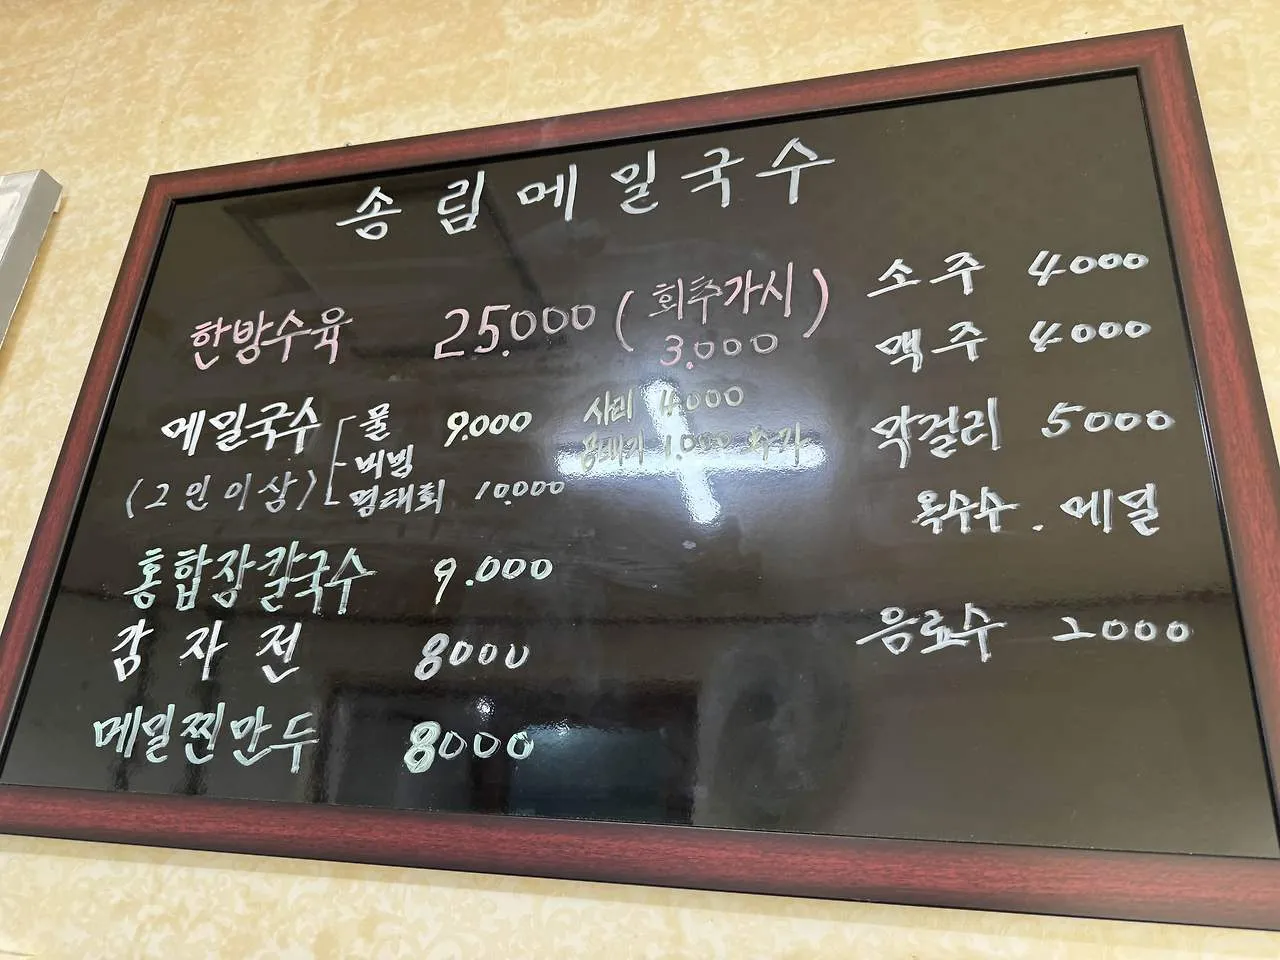 송림메밀국수
한방수육 25.000 (회추가시 3.000)
메밀국수 물 9.000 사리 4000
비빔 곱배기 1.000 추가
(2인이상) 명태회 10.000
홍합장칼국수 9.000
감자전 8000
메밀찐만두 8000
소주 4000
맥주 4000
막걸리 5000
옥수수 . 메밀
음료수 2000